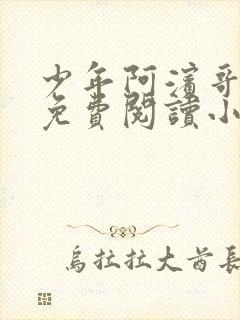 少年阿濱哥
免費閱讀小
烏拉拉大酋長